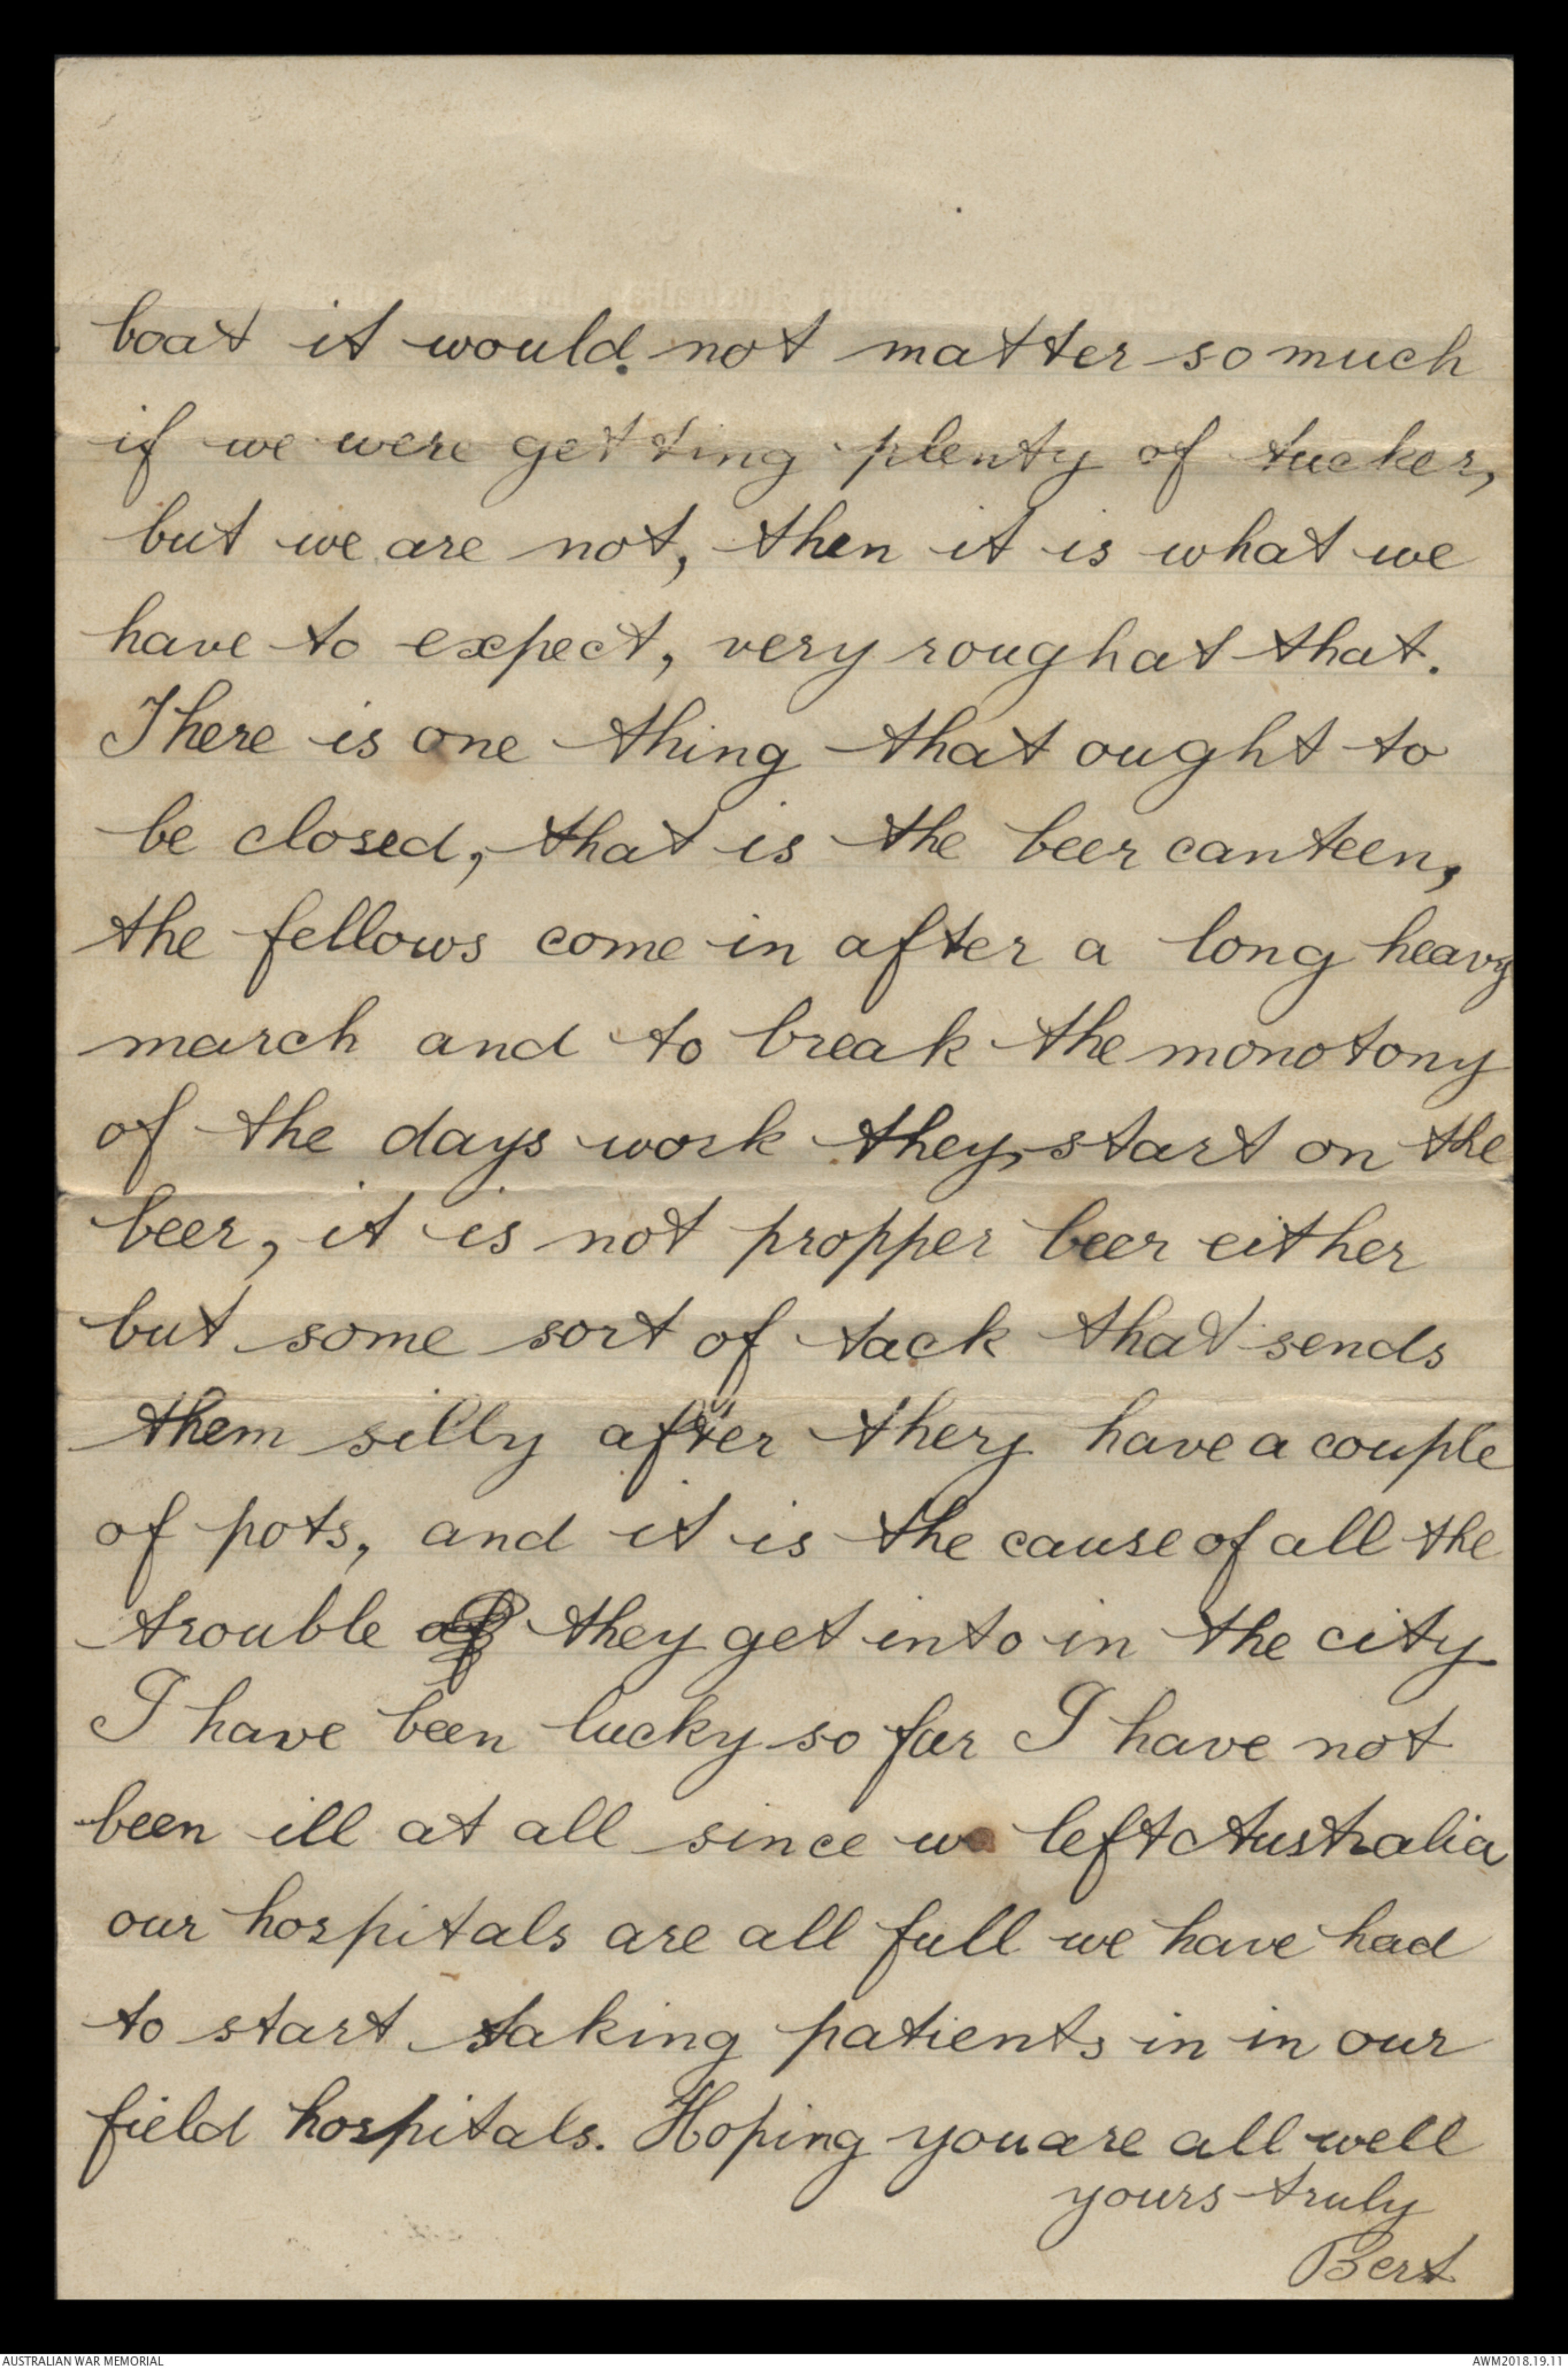 boat it would not matter so much
if we were getting plenty of tucker,
but we are not, then it is what we
have to expect, very rough at that.
There is one thing that ought to
be closed, that is the beer canteen,
the fellows come in after a long heavy
march and to break the monotony
of the days work they start on the
beer, it is not propper beer either
but some sort of tack that sends
them silly after they have a couple
of pots, and it is the cause of all the
trouble they get into in the city
I have been lucky so far I have not
been ill at all since we left Australia
our hospitals are all full we have had
to start taking patients in in our
field hospitals. Hoping you are all well
yours truly
Bert
AUSTRALIAN WAR MEMORIAL
AWM2018.19.11